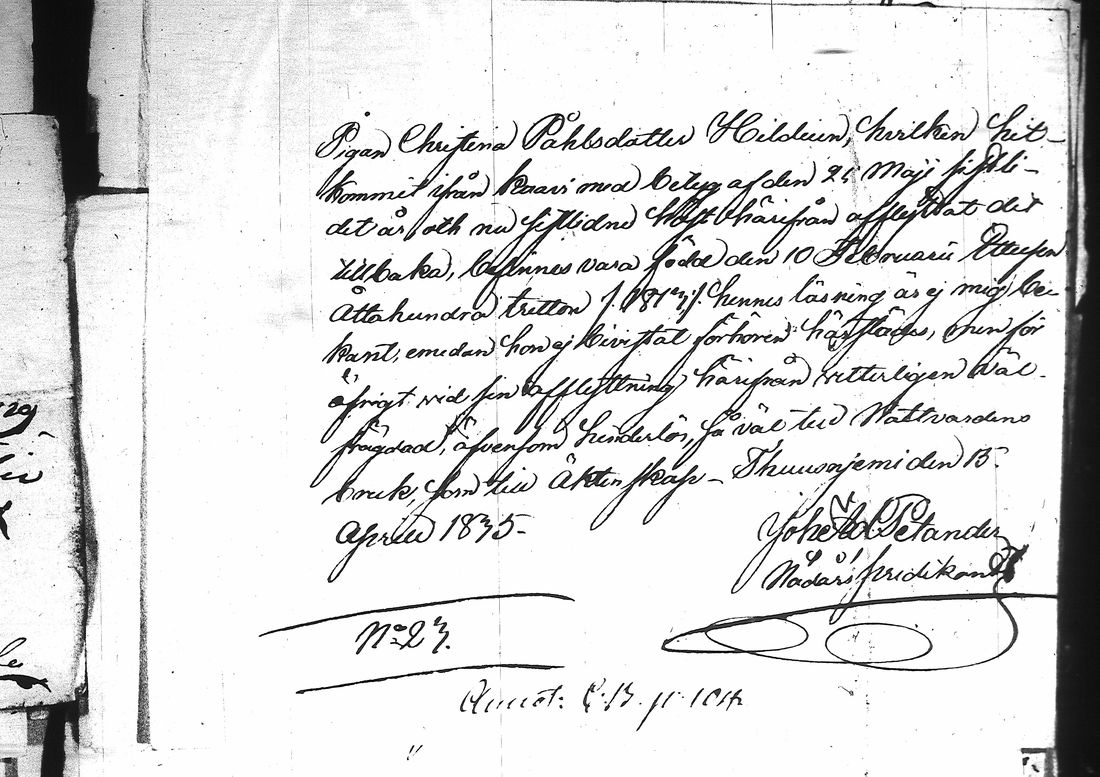 Pigan Christina Påhlsdotter Hildeen, hvilken hit-
kommit ifrån Kaavi med betyg af den 21 Maji sistli-
det år och nu sistlidne höst härifrån afflyttat dit
tillbaka, befinnes vara född den 10 Februarii Ettusen
Åttahundra tretton /. 1813 ./ hennes läsning är ej mig be-
kant, emedan hon ej bivistat förhören härstädes, men för
öfrigt vid sin afflyttning härifrån vitterligen väl-
frägdad, äfvensom hinderlös, så väl till Nattvardens
bruk, som till Äktenskap – Thuusnjemi den 15.
Aprill 1835.
Petander
Nådårs predikant
No 23.
Annot: C.B. p. 104